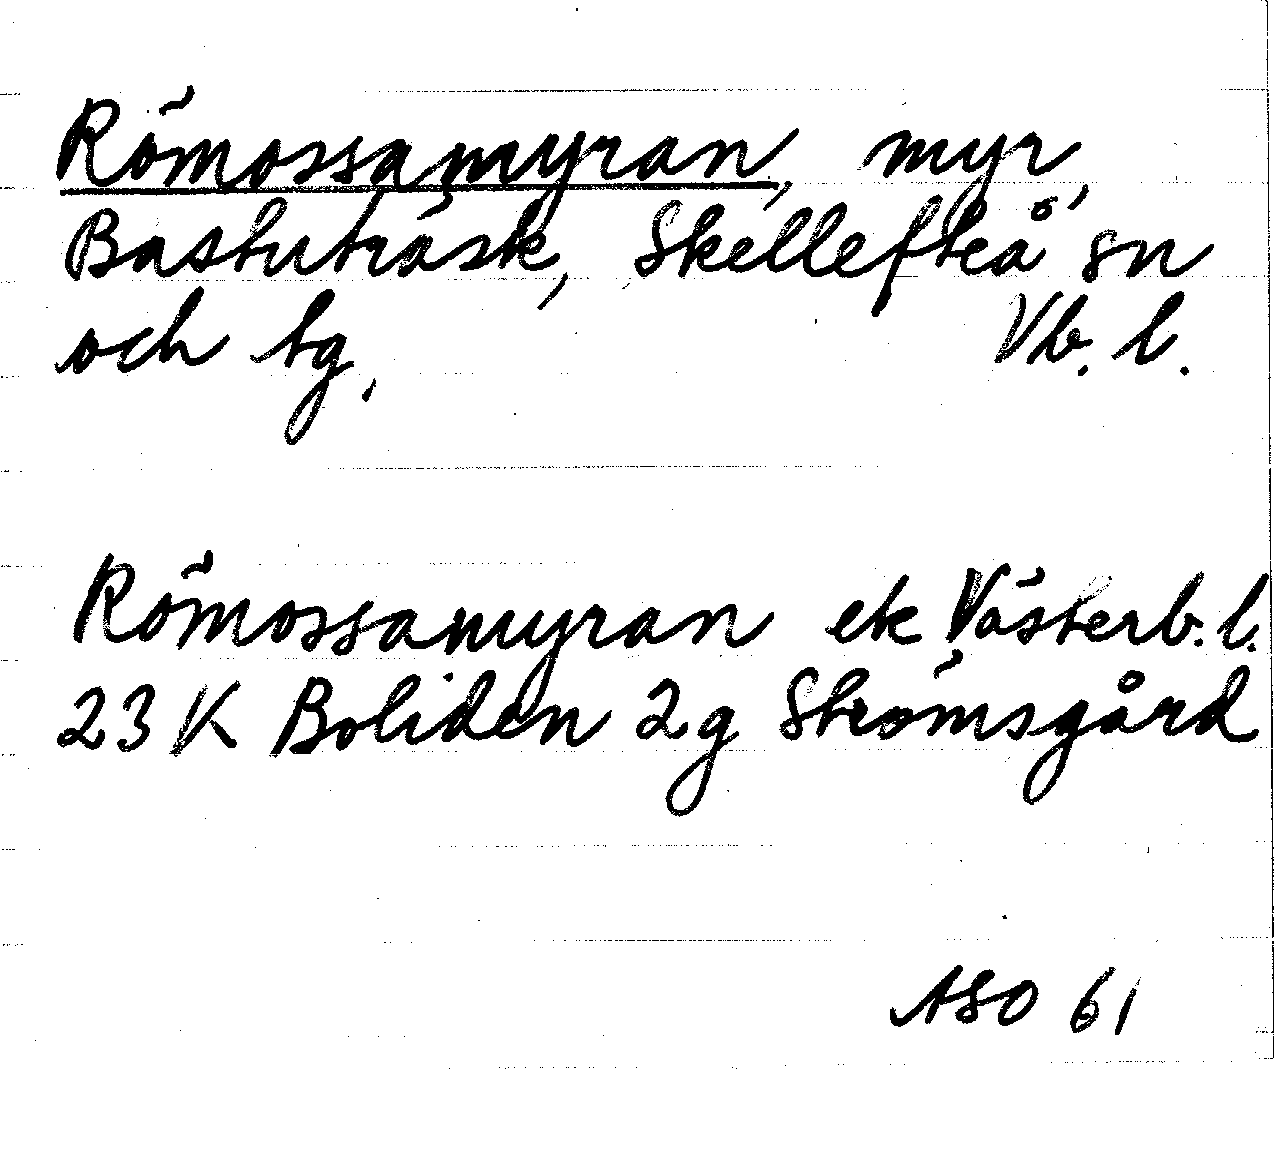 Römossamyran, myr,
Bastuträsk, Skellefteå sn
och tg. Vb. l.
Römossamyran ek Västerb. l.
23 K Boliden 2g Strömsgård
ASO 61